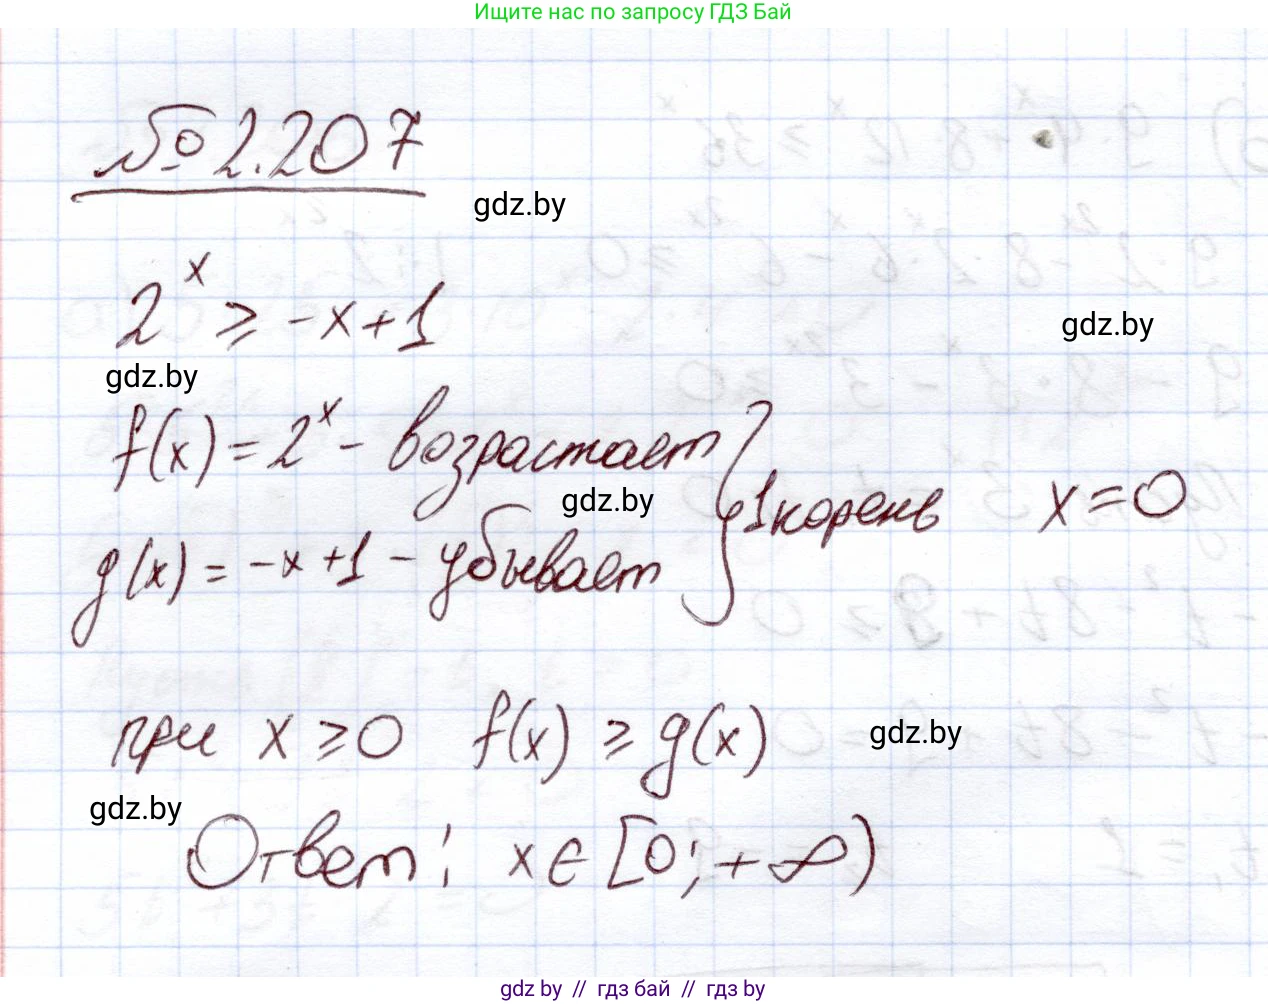 Ищите нас по запросу ГДЗ Бай
№ 2.207
gdz.by
2^x ≥ -x+1
gdz.by
gdz.by
f(x) = 2^x - возрастает
gdz.by
1 корень x = 0
g(x) = -x+1 - убывает
при x ≥ 0 f(x) ≥ g(x)
gdz.by
gdz.by
Ответ: x ∈ [0; +∞)
gdz.by // гдз бай // гдз by